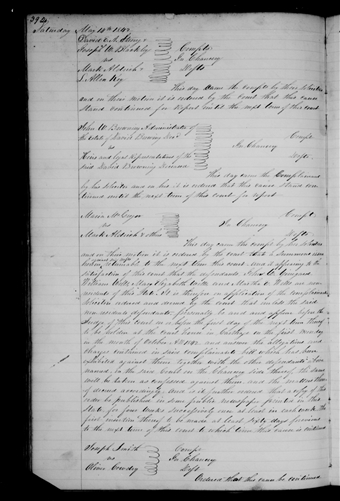 394
Saturday May 14th 1842
David E. A. Strong &
Joseph W. Compts
vs In Chancery
Mark Aldrich & Defts
J. Allen
This day came the compts by their Solicitor
and on their motion it is ordered by the Court that this cause
stand continued for report until the next term of this court
John W. Browning Administrator of
the estate of David Browning Dec. Compt
vs In Chancery
Heirs and legal Representatives of the Defts
said David Browning
This day came the Complainant
by his Solicitor and on his it is ordered that this cause stand con
tinued until the next term of this court for report
Compt
vs In Chancery
Mark Aldrich & others Defts
This day came the compt by his Solicitor
and on this motion it is ordered by the court that a Summons
returnable to the next term this court and it appearing to the
satisfaction of this court that the defendants John
William Witts Mary Elizabeth Witts and Martha E. Witts are non
residents of this State it is therefore on application of the complainants
Solicitor ordered and deemed by the court that the said
non resident defendants personally be and appear before the
Judge of this Court on or before the first day of the next term thereof
to be holden at the Court house in Carthage on the first Monday
in the month of October AD 1842 and answer the allegations and
charges contained in said complainants bill which has been
exhibited against them together with the other defendants therein
named, in the said Court on the Chancery side thereof, the same
will be taken as confessed against them and the matters there
of decreed accordingly and it is further ordered that a copy of this
order be published in some public newspaper printed in this
State for four weeks successively once at least in each week the
first insertion thereof to be made at least sixty days previous
to the next term of this court to which time this cause is continued
Joseph Smith Compt
vs In Chancery
Oliver Cowdry Deft
Ordered that this cause be continued